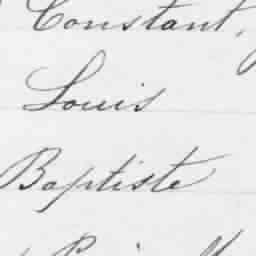 Constant,
Louis
Baptiste